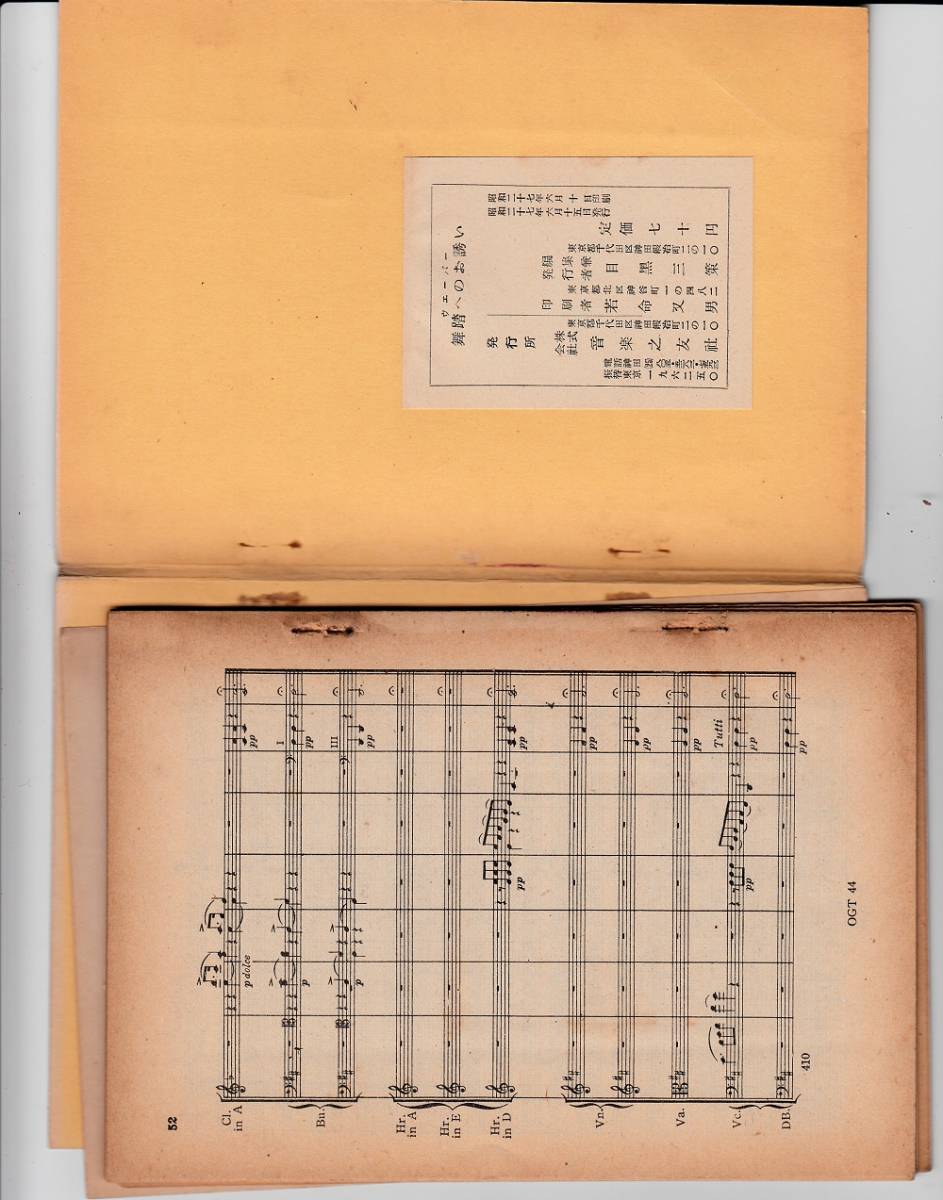 ウェーバー
舞踏へのお誘い
昭和二十七年六月十日印刷
昭和二十七年六月十五日発行
定価七十円
東京都千代田区神田鍛冶町二の一〇
編集兼発行者 目黒三策
東京都北区神谷町一の四八二
印刷者 若命又男
東京都千代田区神田鍛冶町二の一〇
発行所 株式会社 音楽之友社
電話神田
振替東京一九六二五〇
52
Cl. in A
p dolce
pp
Bn.
p
I
pp
p
III
pp
Hr. in A
Hr. in E
Hr. in D
pp
pp
Vn.
pp
pp
Va.
pp
Vc.
pp
Tutti
pp
DB.
pp
410
OGT 44